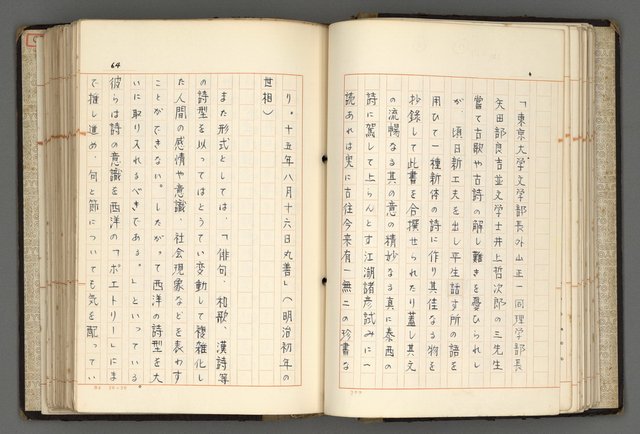 「東京大学文学部長外山正一同理学部長
矢田部良吉並文学士井上哲次郎の三先生
嘗て古歌や古詩の解し難きを憂ひられし
が 頃日新工夫を出し平生話す所の語を
用ひて一種新体の詩に作り其佳なる物を
抄録して此書を合撰せられたり蓋し其文
の流暢なる其の意の精妙なる真に泰西の
詩に駕して上らんとす江湖諸彦試みに一
読あれは実に古往今来有一無二の珍書な
り。十五年八月十六日丸善」（明治初年の
世相）
また形式としては、「俳句、和歌、漢詩等
の詩型を以ってはとうてい変動して複雑化し
た人間の感情や意識、社会現象などを表わす
ことができない。したがって西洋の詩型を大
いに取り入れるべきである。」といっている。
彼らは詩の意識を西洋の「ポエトリー」にま
で推し進め、句と節についても気を配ってい
64